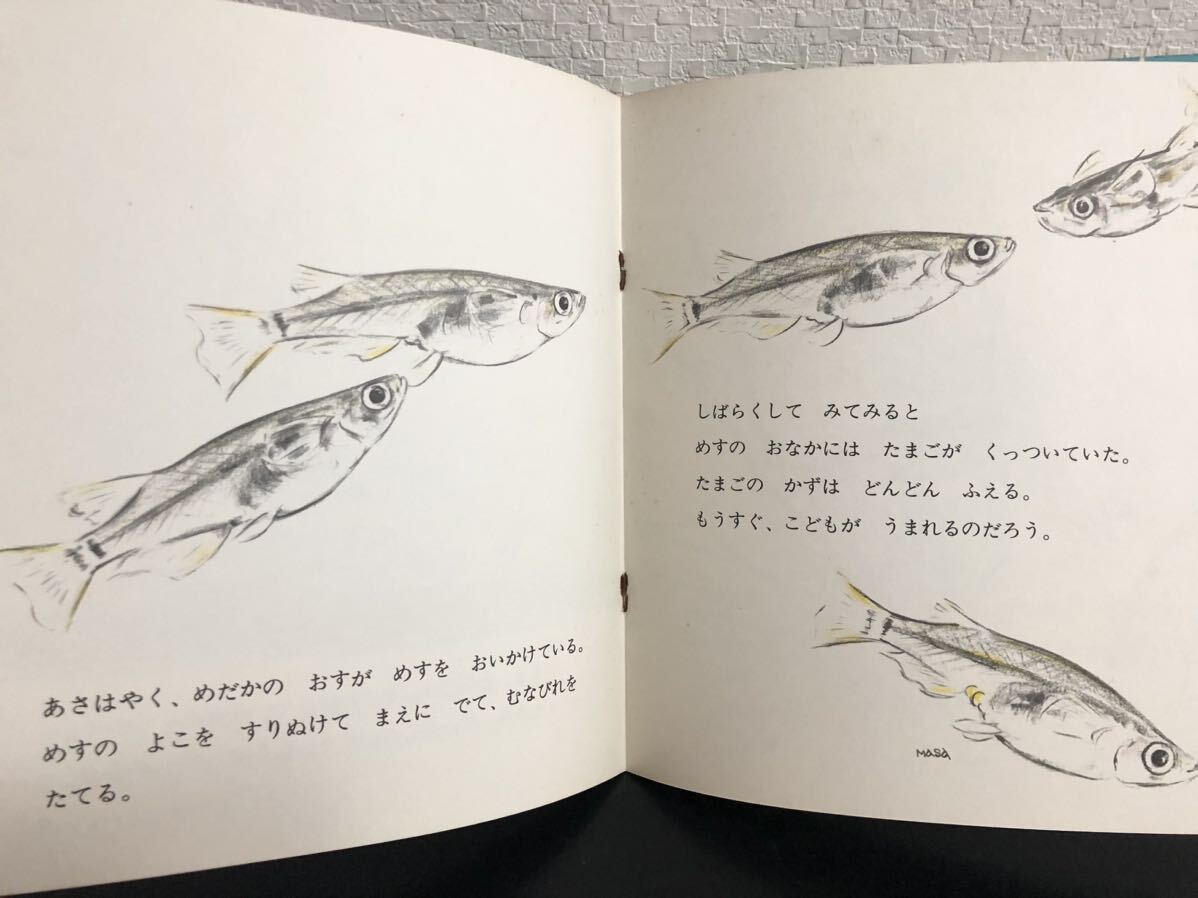 あさはやく、めだかの　おすが　めすを　おいかけている。
めすの　よこを　すりぬけて　まえに　でて、むなびれを
たてる。
しばらくして　みてみると
めすの　おなかには　たまごが　くっついていた。
たまごの　かずは　どんどん　ふえる。
もうすぐ、こどもが　うまれるのだろう。
MASA